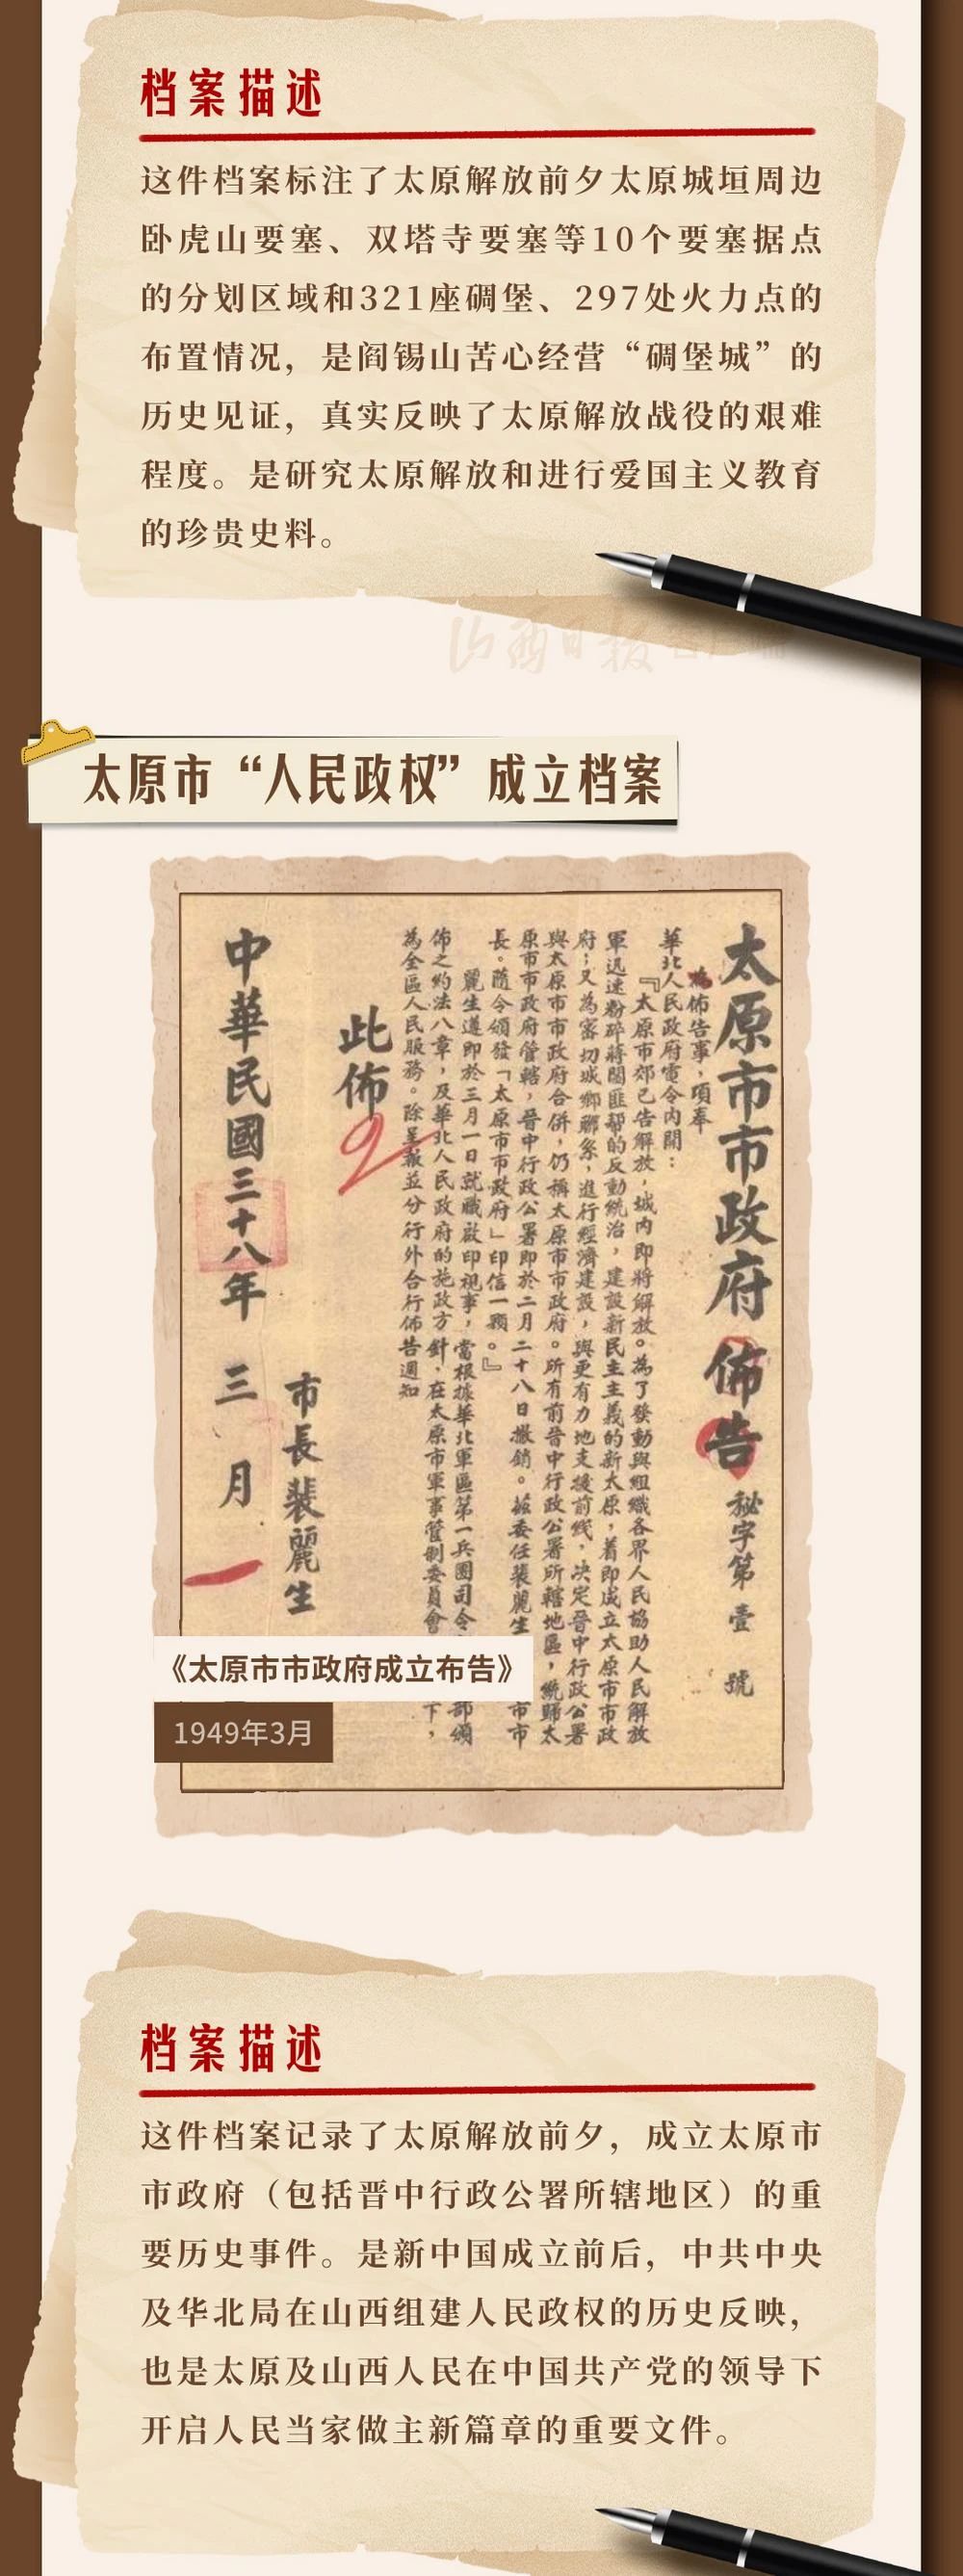 档案描述
这件档案标注了太原解放前夕太原城垣周边
卧虎山要塞、双塔寺要塞等10个要塞据点
的分划区域和321座碉堡、297处火力点的
布置情况，是阎锡山苦心经营“碉堡城”的
历史见证，真实反映了太原解放战役的艰难
程度。是研究太原解放和进行爱国主义教育
的珍贵史料。
山西日报客户端
太原市“人民政权”成立档案
太原市市政府佈告 秘字第壹號
為佈告事，項奉
華北人民政府電令内開：
『太原市郊已告解放，城内即將解放。為了發動與組織各界人民協助人民解放
軍迅速粉碎蔣閻匪幫的反動統治，建設新民主主義的新太原，着即成立太原市市政
府；又為密切城鄉聯系，進行經濟建設，與更有力地支援前线，决定晉中行政公署
與太原市市政府合併，仍稱太原市市政府。所有前晉中行政公署所轄地區，統歸太
原市市政府管轄，晉中行政公署即於二月二十八日撤銷。茲委任裴麗生 市市
長。隨令頒發「太原市市政府」印信一顆。』
麗生遵即於三月一日就職啟印視事，當根據華北軍區第一兵團司令 部頒
佈之约法八章，及華北人民政府的施政方針，在太原市軍事管制委員會 下，
為全區人民服務。除呈報並分行外合行佈告週知
此佈
市長裴麗生
中華民國三十八年 三 月
《太原市市政府成立布告》
1949年3月
档案描述
这件档案记录了太原解放前夕，成立太原市
市政府（包括晋中行政公署所辖地区）的重
要历史事件。是新中国成立前后，中共中央
及华北局在山西组建人民政权的历史反映，
也是太原及山西人民在中国共产党的领导下
开启人民当家做主新篇章的重要文件。